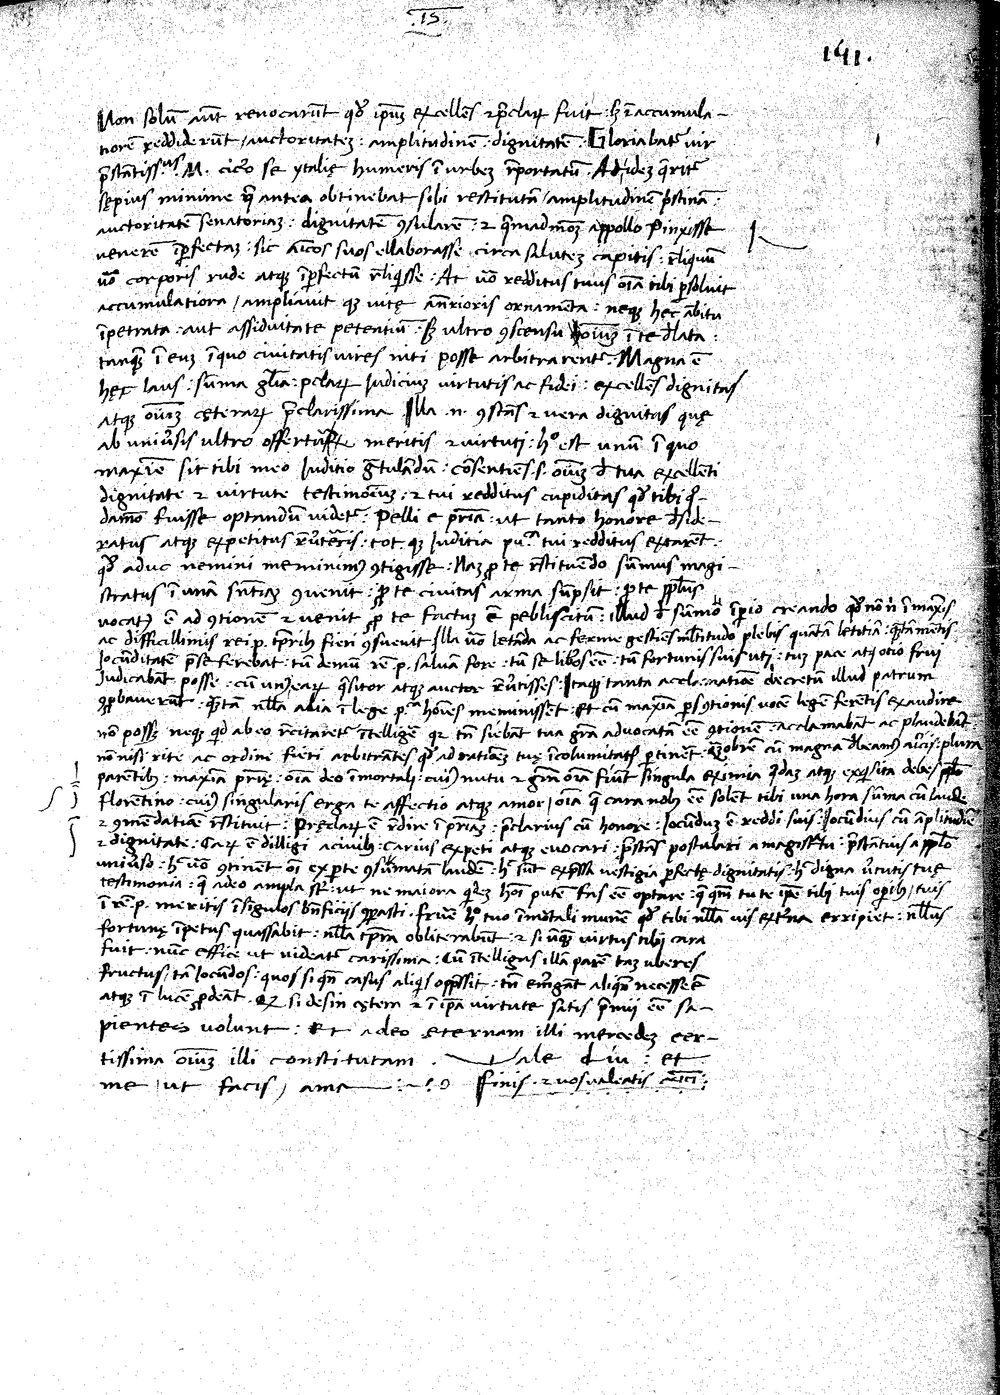 .15.
141.
Non solū aūt renocarūt qđ ipsuȝ excellēs ⁊ p̄claꝝ fuit : h̄ r̄accumula-
tiorē reddiderūt / auctoritateȝ : amplitudinē : dignitatē : Gloriabat᷑ uir
p̄stātissi᷑mus M. cic̄o se ytalię humeris ī urbeȝ r̄portatū : At idēȝ q̄rit᷑
sępius minime qȝ antea obtinebat sibi restitutā / amplitudinē p̄stinā :
auctoritatē senatoriaȝ : dignitatē ꝯsularē : ⁊ q̄madmoȝ appollo Pinxisse
venerē īperfectaȝ : sic aīcos suos ellaborasse circa saluteȝ capitis : r̄liquū
ūo corporis rude atqȝ īperfectū r̄liqisse : At ūo redditus tuus oīa tibi p̄soluit
accumulatiora / ampliauit qȝ uitę anrioris ornam̄ta : neqȝ hec ābitu
īpetrata aut assiduitate petentiū : Sȝ ultro ꝯscensu oīuȝ ī te d̄lata :
tanqȝ ī euȝ īquo ciuitatis uires niti posse arbitrarent᷑ : Magna ē
hęc laus : sūma gl̄ia : p̄claꝝ Iudiciuȝ uirtutis ac fidei : excellēs dignitas
atqȝ oīuȝ cęteraꝝ p̄clarissima Illa .n. ꝯstās ⁊ uera dignitas quę
ab uniūsis ultro offertur meritis ⁊ uirtuti : h° est unū ī quo
maxīe sit tibi meo Iuditio gr̄tulādū : cōsentiēs .s. oīuȝ d̄ tua excellēti
dignitate ⁊ uirtute testimoīuȝ : ⁊ tui redditus cupiditas qđ tibi q̄-
damō fuisse optandū uidet᷑ : Pelli e p̄riā : ut tanto honore d̄side-
ratus atqȝ expetitus r̄ūteris : tot qȝ Iuditia pu.ca tui redditus extarēt :
qđ aduc nemini meminimꝰ ꝯtigisse : Naȝ ꝓ te r̄stituēdo sūmus magi-
stratus ī unā sn̄tiaȝ ꝯuenit : ꝓ te ciuitas arma sūpsit : ꝓ te pp̄lus
vocatꝰ ē ad ꝯtionē ⁊ uenit ꝓ te factuȝ ē pebliscitū : illud d̄ sūmo īperio creando qđ nō n̄ ī maxis
ac difficillimis rei .p. tp̄rib; fieri ꝯsueuit Illa ūo letāda ac ferme gestiēs ml̄titudo plebis quātā letitiā : q̄tā mentis
Iocūditatē p̄se ferebat : tū demū rē .p. saluā fore : tū se libos eē : tū fortunis suis uti : tuȝ pace atqȝ otio frui
Iudicabāt posse : cū unꝰ eaꝝ q̄sitor atqȝ auctor r̄ūtisses : Itaqȝ tanta acclamatioē decretū illud patrum
ꝯprobauerūt : q̄tā nll̄a alia ī lege p.ca hoīes meminisset : Et cū maxīa p̄s ꝯtionis uocē legē ferētis exaudire
nō possȝ neqȝ qđ ab eo recitaret᷑ ītelligē qȝ tn̄ siebāt tua gr̄a aduocatā eē ꝯtionē : acclamabāt ac plaudebāt
nō nisi rite ac ordine fieri arbitrātes qđ ad ratiōeȝ tuę īcolumitatis ꝑtinet : Qȝobrē cū magna d̄beamꝰ aīcis : plura
parētib; : maxīa p̄rię : oīa deo īmortali : cuiꝰ nutu ⁊ gr̄m oīa fiūt Singula eximia q̄daȝ atqȝ exq̄sita debes pp̄lo
Florentino : cuiꝰ singularis erga te affectio atqȝ amor / oīa q̄ cara nob; eē solent tibi una hora sūma cū laude
⁊ ꝯmēdatiōe r̄stituit : Pręclaꝝ ē r̄dire ī p̄riaȝ : p̄clarius cū honore : Iocūduȝ ē reddi suis : Iocūdius cū āplitudiē
⁊ dignitate : Caꝝ ē dilligi a ciuib; : carius expeti atqȝ euocari : p̄stās postulari a magistr̄tu : p̄stātius a pp̄lo
uniūso : h̄ ūo ꝯtinent oī ex ꝑte ꝯsūmatā laudē : h̄ sūt exp̄ssa uestigia ꝑfectę dignitatis : h̄ digna ūtutis tuę
testimonia : q̄ adeo ampla st̄ : ut ne maiora q̄reȝ hoī putē fas eē optare : q̄ qm̄ tu te ipē tibi tuis opib; / tuis
ī rē .p. meritis ī sīgulos bn̄ficijs ꝯparasti : fruē h° tuo īmortali munē qđ tibi nll̄a uis ext᷑na erripiet : nll̄us
fortunę īpetus quassabit : nll̄a tp̄ra obliterabūt : ⁊ si unqȝ uirtus tibi cara
fuit : nūc effice ut uideat᷑ carissima : Cū ītelligas illā parē taȝ uberes
fructus / tā Iocūdos : quos si qn̄ casus aliqs opp̄ssit : tn̄ em̄gāt aliqn̄ necesse ē
atqȝ ī lucē ꝓdeāt . Qȝ si desin cętera ⁊ ī ip̄a uirtute satis p̄mij eē sa-
pienteȝ uolunt : Et adeo eternam illi mercedeȝ cer-
tissima oīuȝ illi constitutam . Vale diu : et
me / ut facis / ama
Finis ⁊ uos ualeatis aīci :